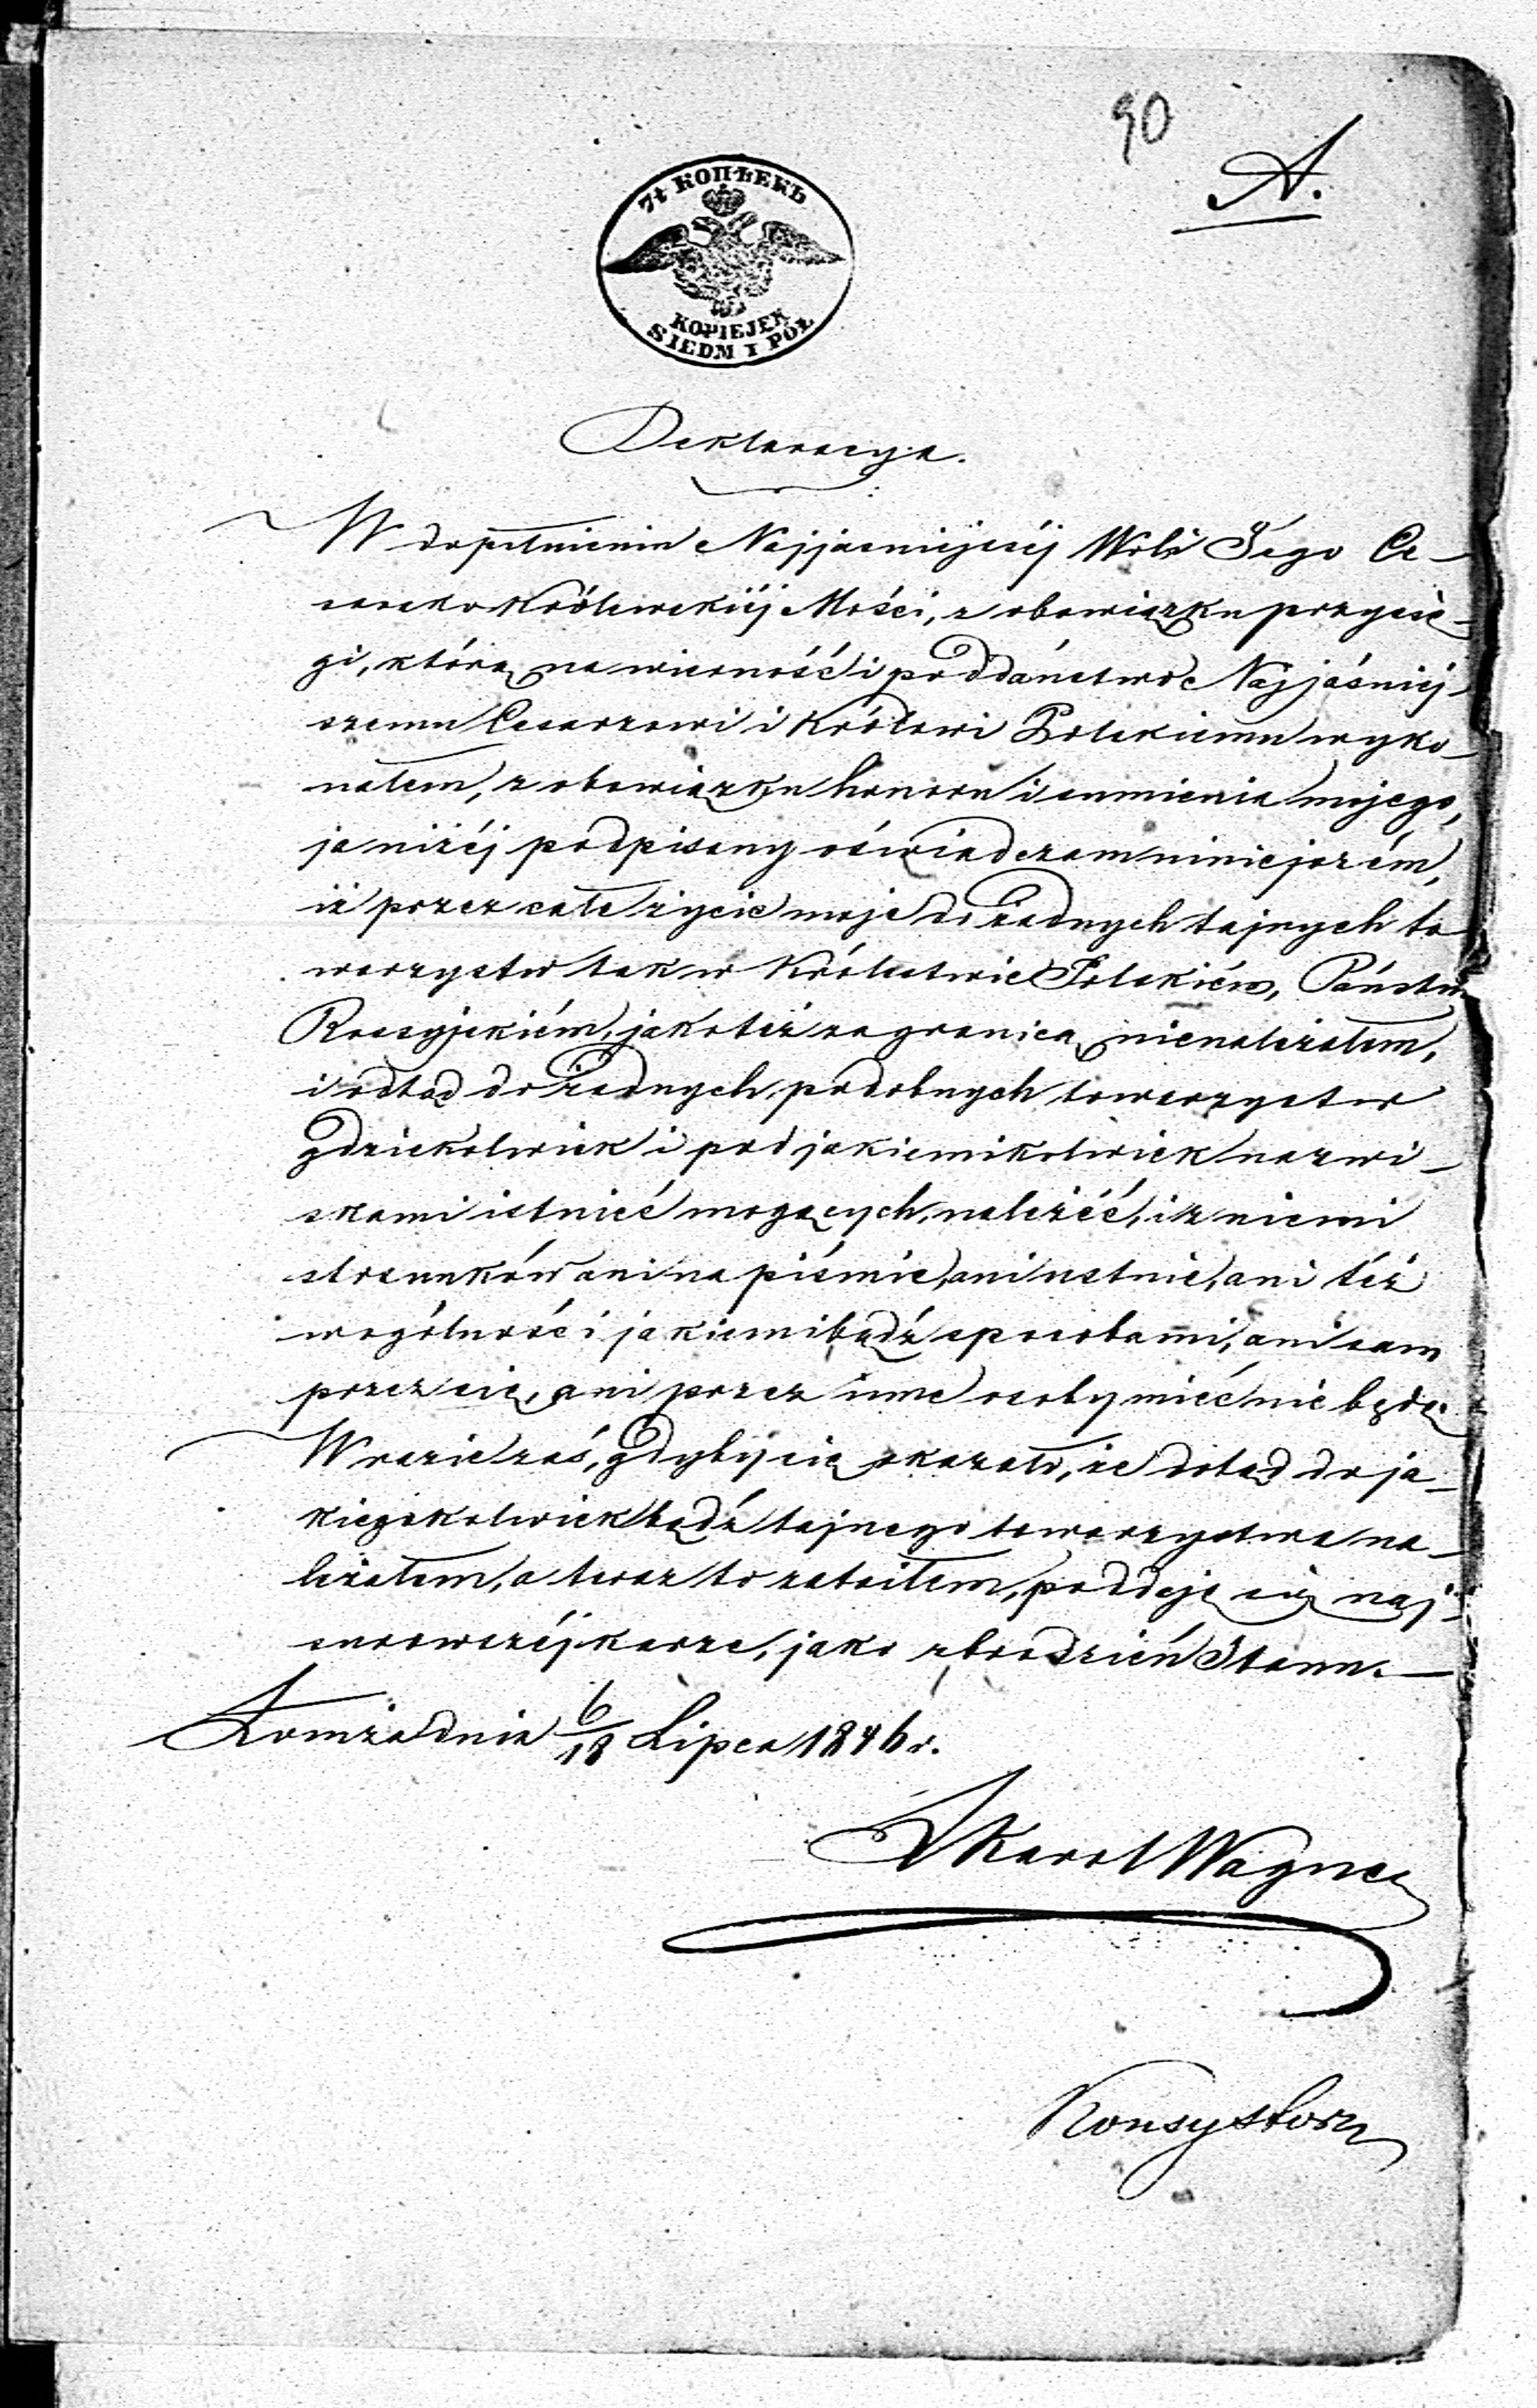 90
A.
7½ КОПѢЕКЪ
KOPIEJEK
SIEDM I PÓŁ
Deklaracya.
W dopełnieniu Najjaśniejszéj Woli Jego Ce-
sarsko Królewskiéj Mości, z obowiązku przysię-
gi, którą na wierność i poddaństwo Najjaśniéj-
szemu Cesarzowi i Królowi Polskiemu wyko-
nałem, z obowiązku honoru i sumienia mojego,
ja niżéj podpisany oświadczam niniejszém,
iż przez całe życie moje do żadnych tajnych to
warzystw tak w Królestwie Polskiém, Państwie
Rossyjskiém, jako też zagranicą nienależałem,
i odtąd do żadnych podobnych towarzystw
gdziekolwiek i pod jakiemikolwiek nazwi-
skami istnieć mogących, należéć, i z niemi
stosunków ani na piśmie, ani ustnie, ani też
w ogólności jakiemibądź sposobami, ani sam
przez się, ani przez inne osoby miéć nie będę
W razie zaś, gdyby się okazało, że dotąd do ja-
kiegokolwiek bądź tajnego towarzystwa na-
leżałem, a teraz to zataiłem, poddaję się naj-
surowszéj karze, jako zbrodzień Stanu.—
Łomża dnia 6/18 Lipca 1846 r.
X Karol Wagner
Konsystorz